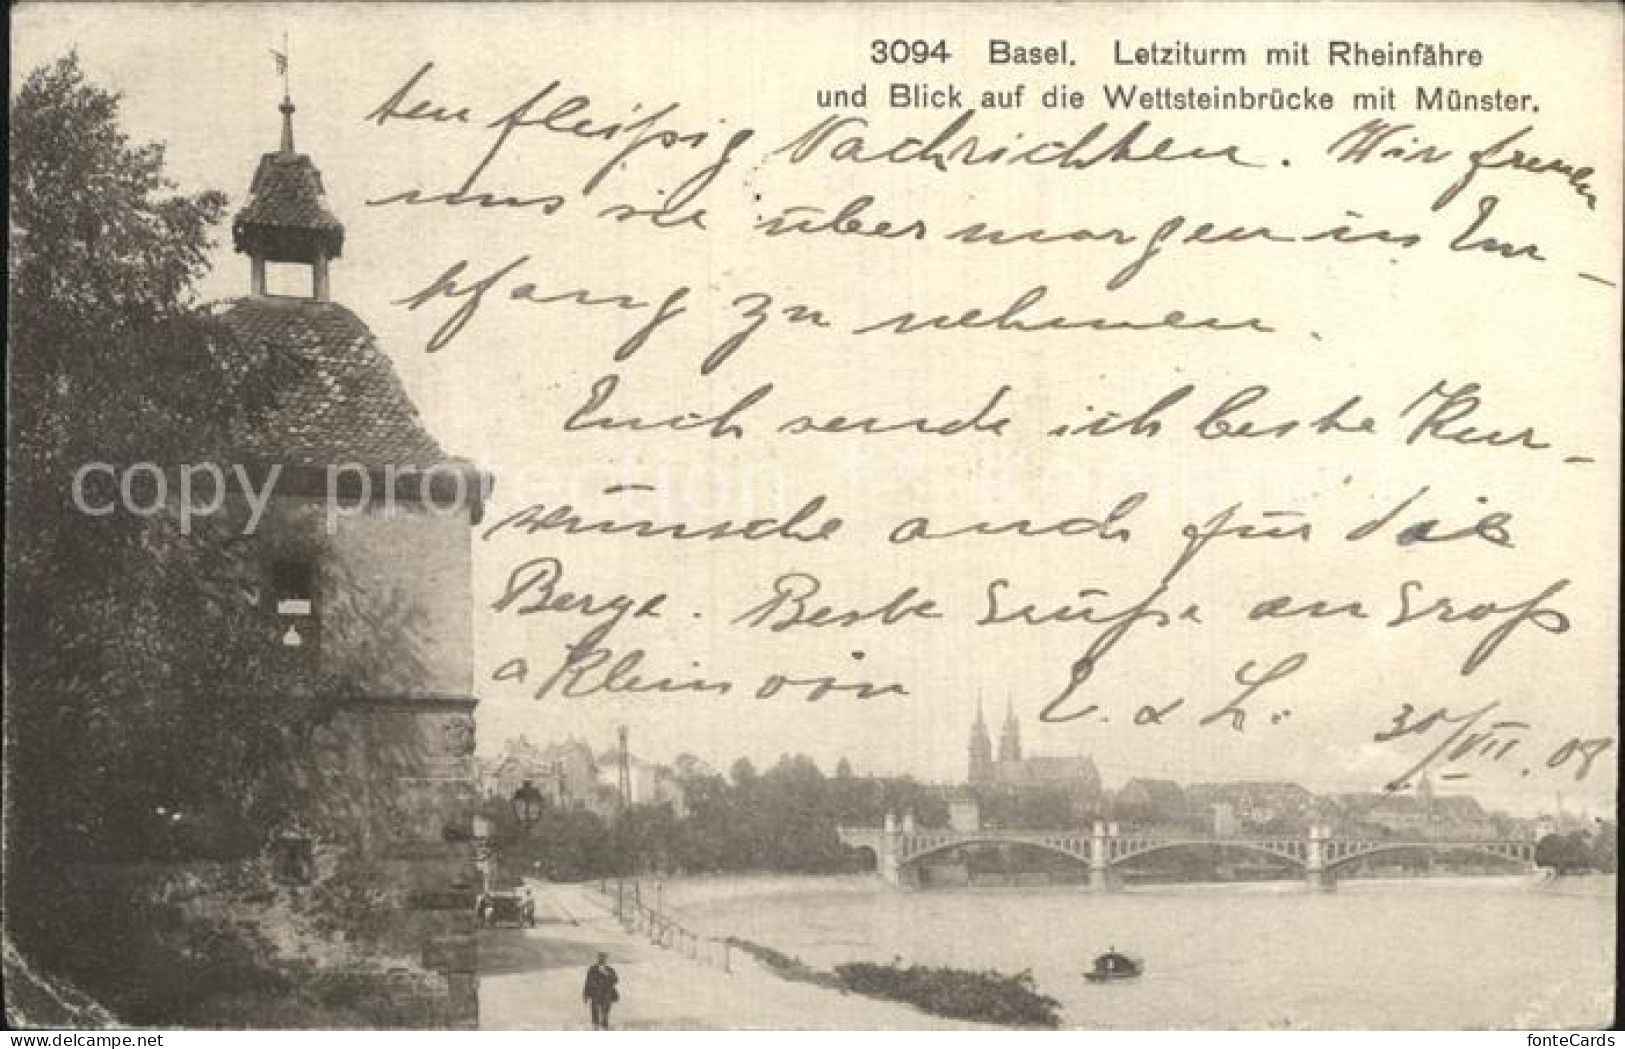 3094 Basel. Letziturm mit Rheinfähre
und Blick auf die Wettsteinbrücke mit Münster.
ten fleißig Nachrichten. Wir freuen
uns sie übermorgen in Em-
pfang zu nehmen.
Euch sende ich beste Kur-
wünsche auch für die
Berge. Beste Grüße an Groß
a Klein von E. & L.
30/VII. 08
copy protection
delcampe.net
fonteCards